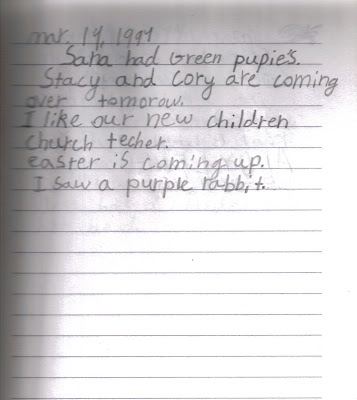 mar. 14, 1997
Sara had Green pupie's.
Stacy and Cory are coming
over tomorow.
I like our new children
Church techer.
easter is coming up.
I saw a purple rabbit.